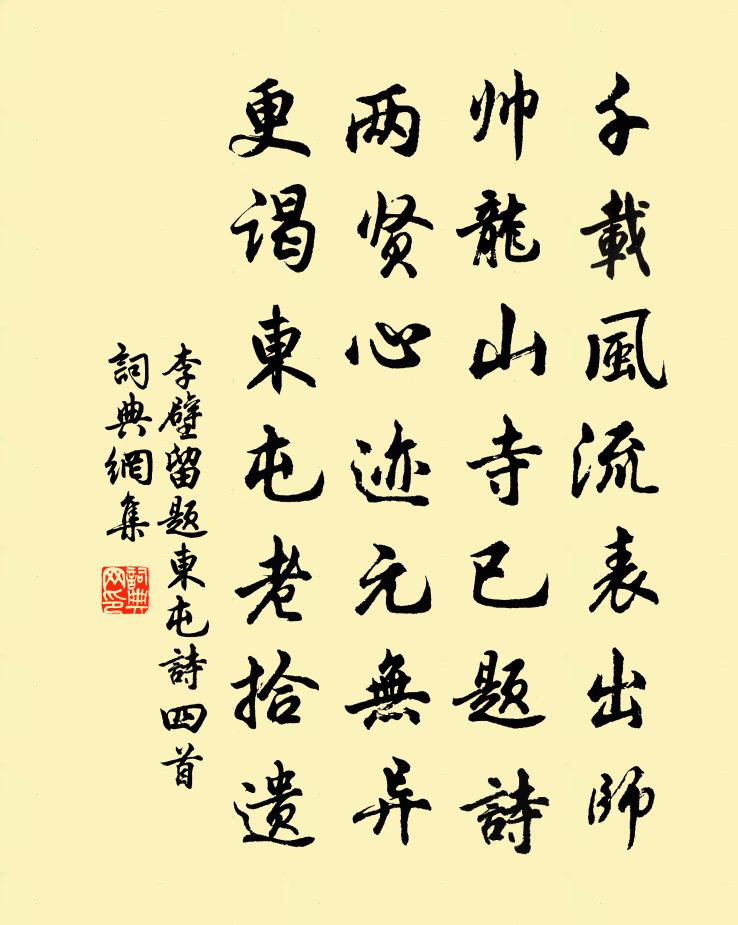 千載風流表出師
帅龍山寺已题詩
两贤心迹元無异
更谒東屯老拾遗
李壁留题東屯詩四首
詞典網集
詞典網印